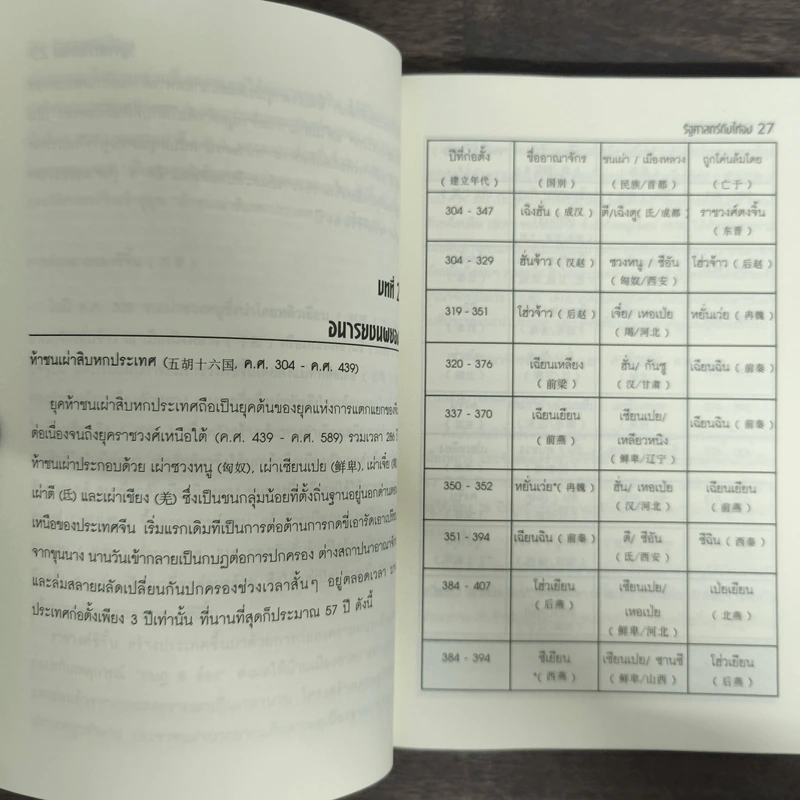 บทที่ 2
อนารยชนเผย
ห้าชนเผ่าสิบหกประเทศ (五胡十六国, ค.ศ. 304 - ค.ศ. 439)
ยุคห้าชนเผ่าสิบหกประเทศถือเป็นยุคต้นของยุคแห่งการแตกแยกของ
ต่อเนื่องจนถึงยุคราชวงศ์เหนือใต้ (ค.ศ. 439 - ค.ศ. 589) รวมเวลา 286
ห้าชนเผ่าประกอบด้วย เผ่าซวงหนู (匈奴), เผ่าเซียนเปย (鲜卑), เผ่าเจี๋ย
เผ่าตี (氐) และเผ่าเชียง (羌) ซึ่งเป็นชนกลุ่มน้อยที่ตั้งถิ่นฐานอยู่นอกด่าน
เหนือของประเทศจีน เริ่มแรกเดิมทีเป็นการต่อต้านการกดขี่เอารัดเอาเปรียบ
จากขุนนาง นานวันเข้ากลายเป็นกบฏต่อการปกครอง ต่างสถาปนาอาณาจักร
และล่มสลายผลัดเปลี่ยนกันปกครองช่วงเวลาสั้นๆ อยู่ตลอดเวลา
ประเทศก่อตั้งเพียง 3 ปีเท่านั้น ที่นานที่สุดก็ประมาณ 57 ปี ดังนี้
รัฐศาสตร์ถังไท่จง 27
ปีที่ก่อตั้ง ชื่ออาณาจักร ชนเผ่า / เมืองหลวง ถูกโค่นล้มโดย
(建立年代) (国别) (民族/首都) (亡于)
304 - 347 เฉิงฮั่น (成汉) ตี/เฉิงตู (氐/成都) ราชวงศ์ตงจิ้น
(东晋)
304 - 329 ฮั่นจ้าว (汉赵) ซวงหนู / ซีอัน โฮ่วจ้าว (后赵)
(匈奴/西安)
319 - 351 โฮ่วจ้าว (后赵) เจี๋ย/ เหอเป่ย หยั่นเว่ย (冉魏)
(羯/河北)
320 - 376 เฉียนเหลียง ฮั่น/ กันซู เฉียนฉิน (前秦)
(前梁) (汉/甘肃)
337 - 370 เฉียนเยียน เซียนเปย/ เฉียนฉิน (前秦)
(前燕) เหลียวหนิง
(鲜卑/辽宁)
350 - 352 หยั่นเว่ย*(冉魏) ฮั่น/ เหอเป่ย เฉียนเยียน
(汉/河北) (前燕)
351 - 394 เฉียนฉิน (前秦) ตี/ ซีอัน ซีฉิน (西秦)
(氐/西安)
384 - 407 โฮ่วเยียน เซียนเปย/ เป่ยเยียน
(后燕) เหอเป่ย (北燕)
(鲜卑/河北)
384 - 394 ซีเยียน เซียนเปย/ ซานซี โฮ่วเยียน
*(西燕) (鲜卑/山西) (后燕)